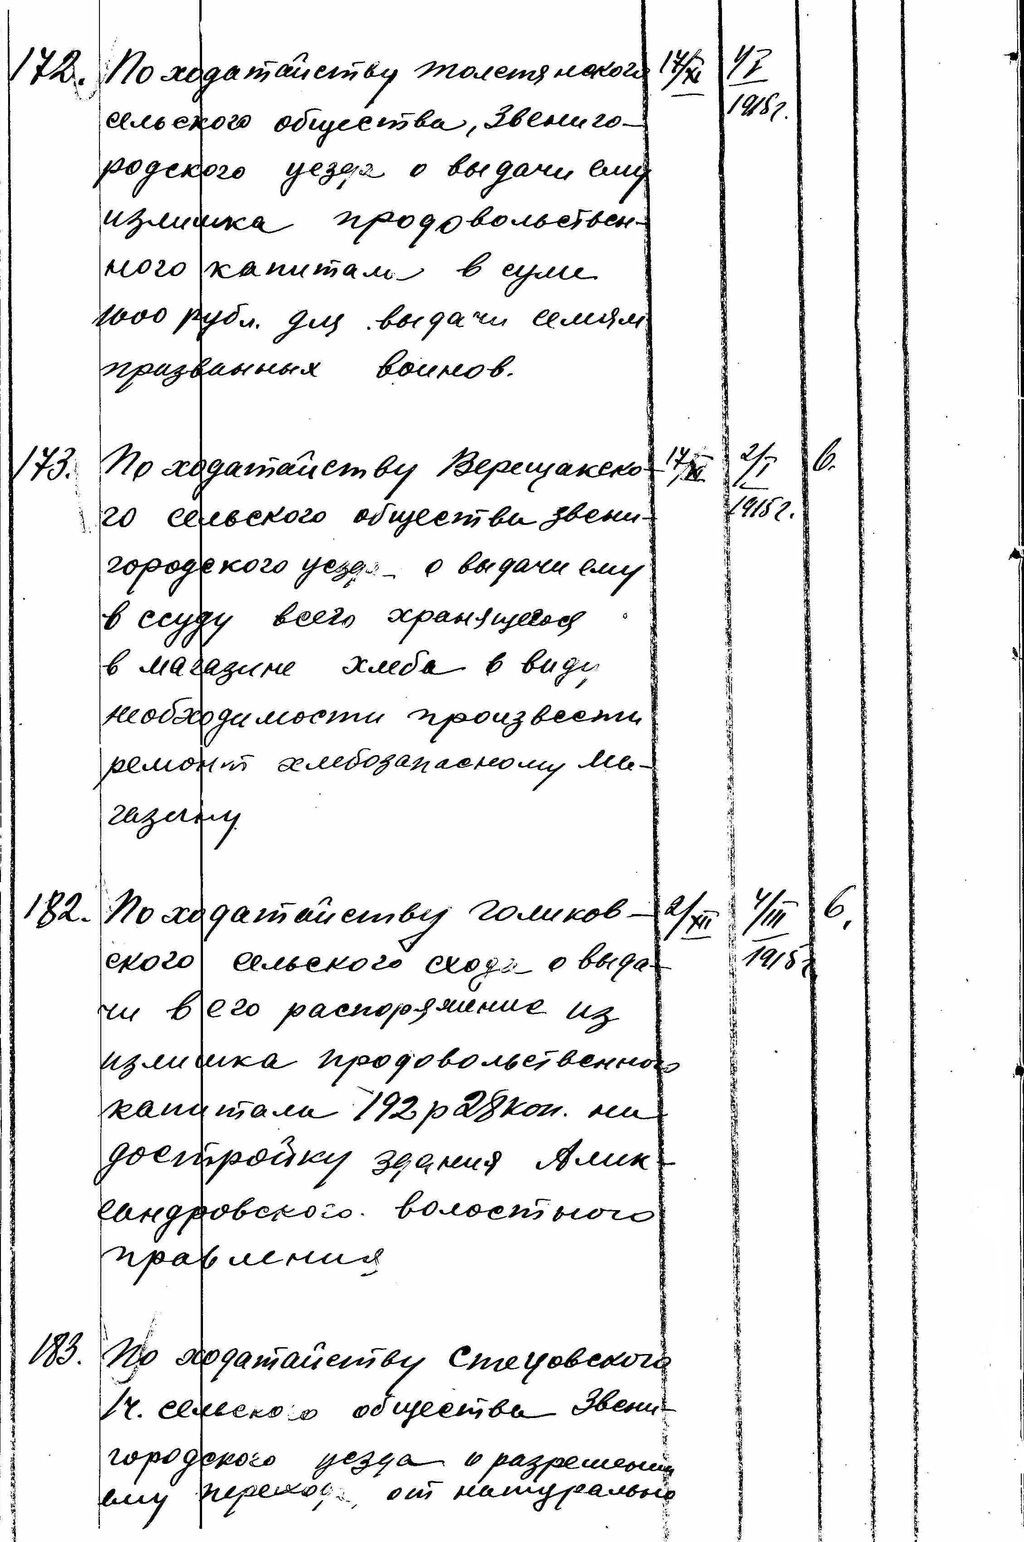 172. По ходатайству толстянского 17/XI 4/I
сельского общества, Звениго- 1915 г.
родского уезда о выдачи ему
излишка продовольствен-
ного капитала в суме
1000 рубл. для выдачи семьям
призванных воинов.
173. По ходатайству Верещакско- 17/XI 2/I 6.
го сельского общества звени- 1915 г.
городского уезда о выдачи ему
в ссуду всего хранящегося
в магазине хлеба в виду
необходимости произвести
ремонт хлебозапасному ма-
газину
182. По ходатайству голиков- 2/XII 4/III 6.
ского сельского схода о выда- 1915 г.
чи в его распоряжение из
излишка продовольственного
капитала 192 р 28 коп. на
достройку здания Алик-
сандровского волостного
правления
183. По ходатайству Стецовского
1 ч. сельского общества Звени-
городского уезда о разрешении
ему перехода от натурально